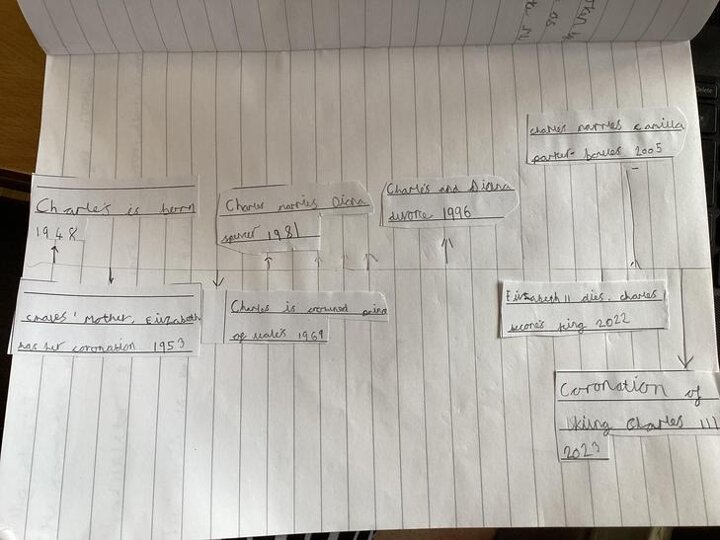 Charles is born
1948
Charles' Mother, Elizabeth
has her coronation 1953
Charles marries Diana
spencer 1981
Charles is crowned prince
of wales 1969
Charles and Diana
divorce 1996
Charles marries Camilla
parker-bowles 2005
Elizabeth II dies. Charles
becomes king 2022
Coronation of
King Charles III
2023
Delete